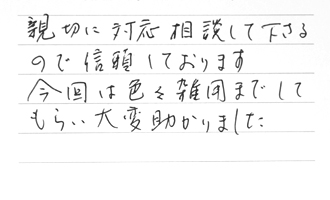 親切に対応相談して下さる
ので信頼しております
今回は色々雑用までして
もらい大変助かりました